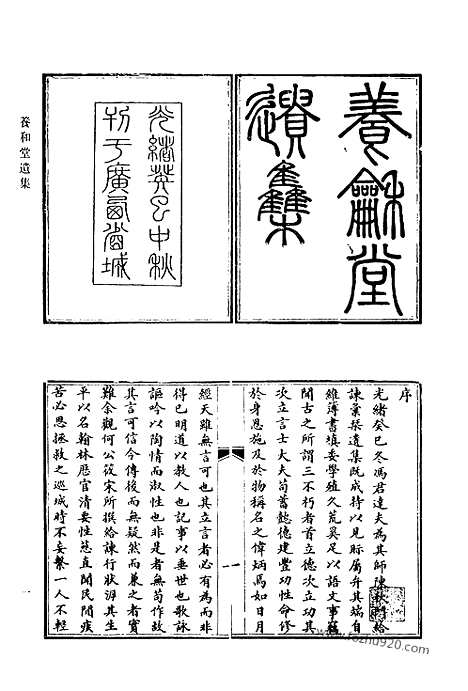 養龢堂
遺集
光緒癸巳中秋
刊于廣西省城
養和堂遺集
序
光緒癸巳冬馮君達夫為其師陳
諫彙槧遺集既成持以見际屬弁其端自
維簿書填委學殖久荒奚足以語文事竊
聞古之所謂三不朽者首立德次立功其
次立言士大夫苟蓄懿德建豐功性命修
於身恩施及於物稱名之偉炳焉如日月
經天雖無言可也其立言者必有為而非
得已明道以教人也記事以垂世也歌詠
謳吟以陶情而淑性也非是者無苟作故
其言可信今傳後而無疑然而兼之者實
難余觀何公筱宋所撰給諫行狀涉其生
平以名翰林歷官清要性慈直聞民間疾
苦必思拯救之巡城時不妄繫一人不輕
一
一
www.fozhu920.com